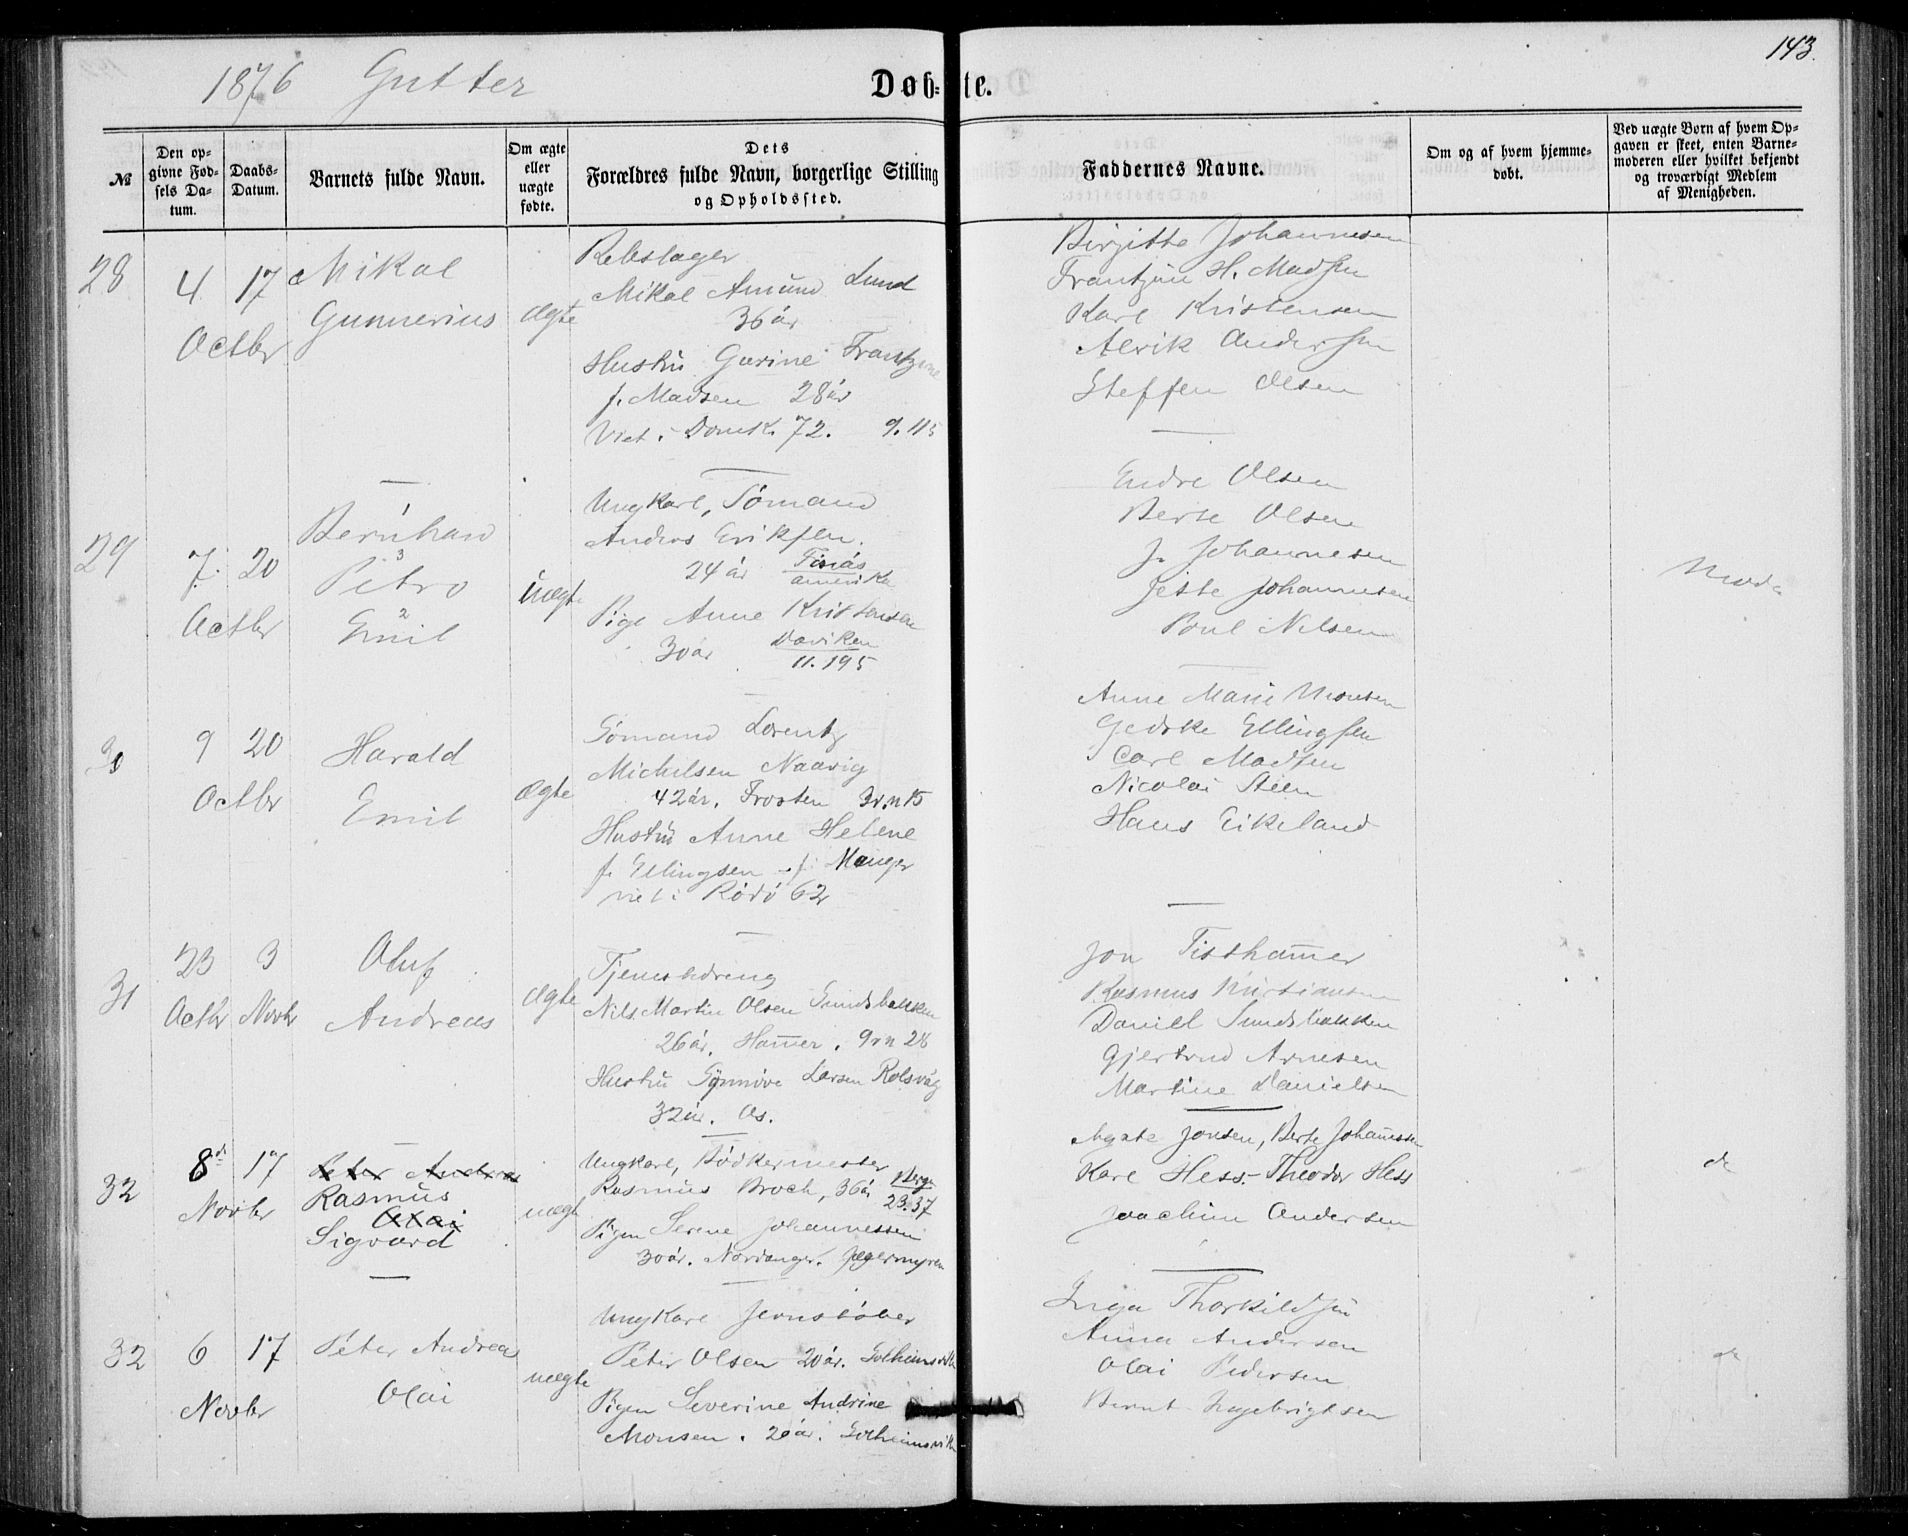 143.
1876 Gutter
Døb- te.
№
Den op-
givne Fød-
sels Da-
tum.
Daabs-
Datum.
Barnets fulde Navn.
Om ægte
eller
uægte
fødte.
Dets
Forældres fulde Navn, borgerlige Stilling
og Opholdssted.
Faddernes Navne.
Om og af hvem hjemme-
døbt.
Ved uægte Børn af hvem Op-
gaven er skeet, enten Barne-
moderen eller hvilket bekjendt
og troværdigt Medlem
af Menigheden.
28
4 17
Octbr
Mikal
Gunnerius
ægte
Rebslager
Mikal Amund Lund
36 år
Hustru Gurine Frantzine
f. Madsen 28 år
Viet i Domk. 72. 9. 115
Birgitte Johannesen
H. Madsen
Karl Kristensen
Alrik Andersen
Steffen Olsen
29
7 20
Octbr
Bernhard
3
Petro
2
Emil
uægte
Ungkarl, Sømand
Anders Eriksen.
24 år
amerika
Pige Anne Kristensen
30 år Daviken
11. 195
Endre Olsen
Berte Olsen
J. Johannesen
Jette Johannesen
Poul Nilsen
30
9 20
Octbr
Harald
Emil
ægte
Sømand Lorentz
Michelsen Naavig
42 år. Frosten
Hustru Anne Helene
f. Ellingsen - f. Manger
viet i Rødø 62
Anne Marie Monsen
Gedske Ellingsen
Carl Madsen
Nicolai Steen
Hans Eikeland
31
23 3
Octbr Novbr
Oluf
Andreas
ægte
Tjenestedreng
Nils Martin Olsen
26 år. Hamer. 9 v n 28
Hustru Synnøve Larsen Rolsvåg
32 år. Os.
Jon
Rasmus Kristiansen
Daniel
Gjertrud Arnesen
Martine Danielsen
32
8de 17
Novbr
Peter Andreas
Rasmus
Olai
Sigvard
uægte
Ungkarl, Bødkermester
Rasmus Broch, 36 år Berg
23.37
Pigen Serene Johannessen
30 år. Nordanger. Jægermyren
Agate Jonsen, Berte Johannessen
Karl Hess - Theodor Hess
Joachim Andersen
do
32
6 17
Novbr
Peter Andreas
Olai
uægte
Ungkarl Jernstøber
Peter Olsen 20 år. Solheimsvik
Pigen Severine Andrine
Monsen. 20 år. Solheimsvik
Inga Thorkildsen
Anna Andersen
Olai Pedersen
Bernt Ingebrigtsen
do